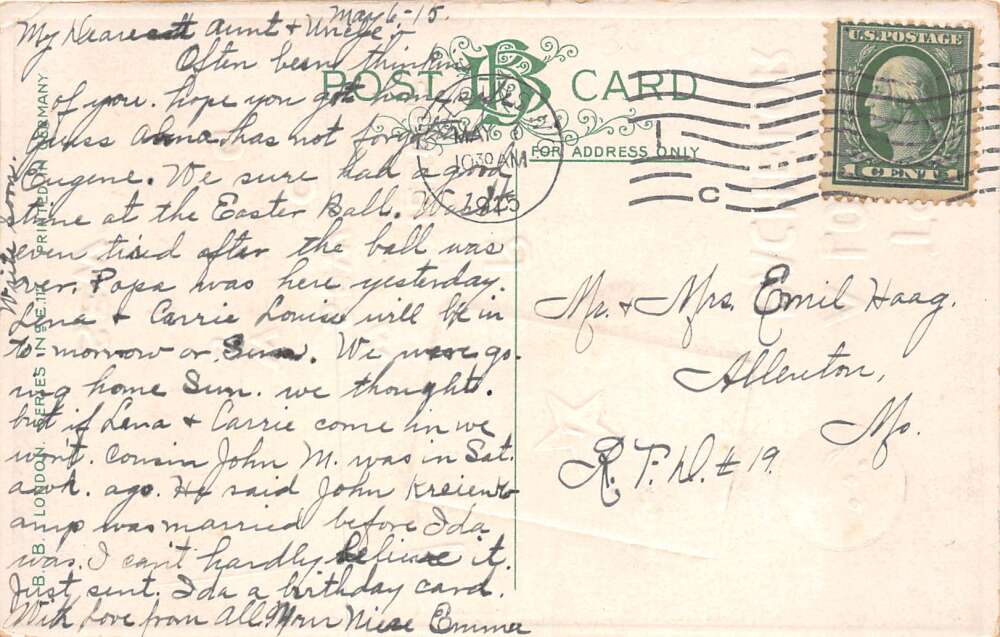 May 6-15.
My Nearest Aunt & Uncle:
Often been thinking
of you. hope you got home safe.
Guess Alma has not forgot
Eugene. We sure had a good
time at the Easter Ball. Wasnt
even tired after the ball was
over. Papa was here yesterday.
Lena & Carrie Louise will be in
to morrow or Sun. We were go
ing home Sun. we thought.
but if Lena & Carrie come in we
won't. Cousin John M. was in Sat.
a wk. ago. He said John Kreienk
amp was married before Ida
was. I can't hardly believe it.
Just sent Ida a birthday card.
With Love from All Your Niece Emma
Write soon.
B. B. LONDON. SERIES No. E. 117. PRINTED IN GERMANY
POST CARD
BB
FOR ADDRESS ONLY
MAY 6
10 30 AM
1915
C
U.S. POSTAGE
1 CENT 1
Mr. & Mrs. Emil Haag.
Allenton,
Mo.
R. F. D. # 19.